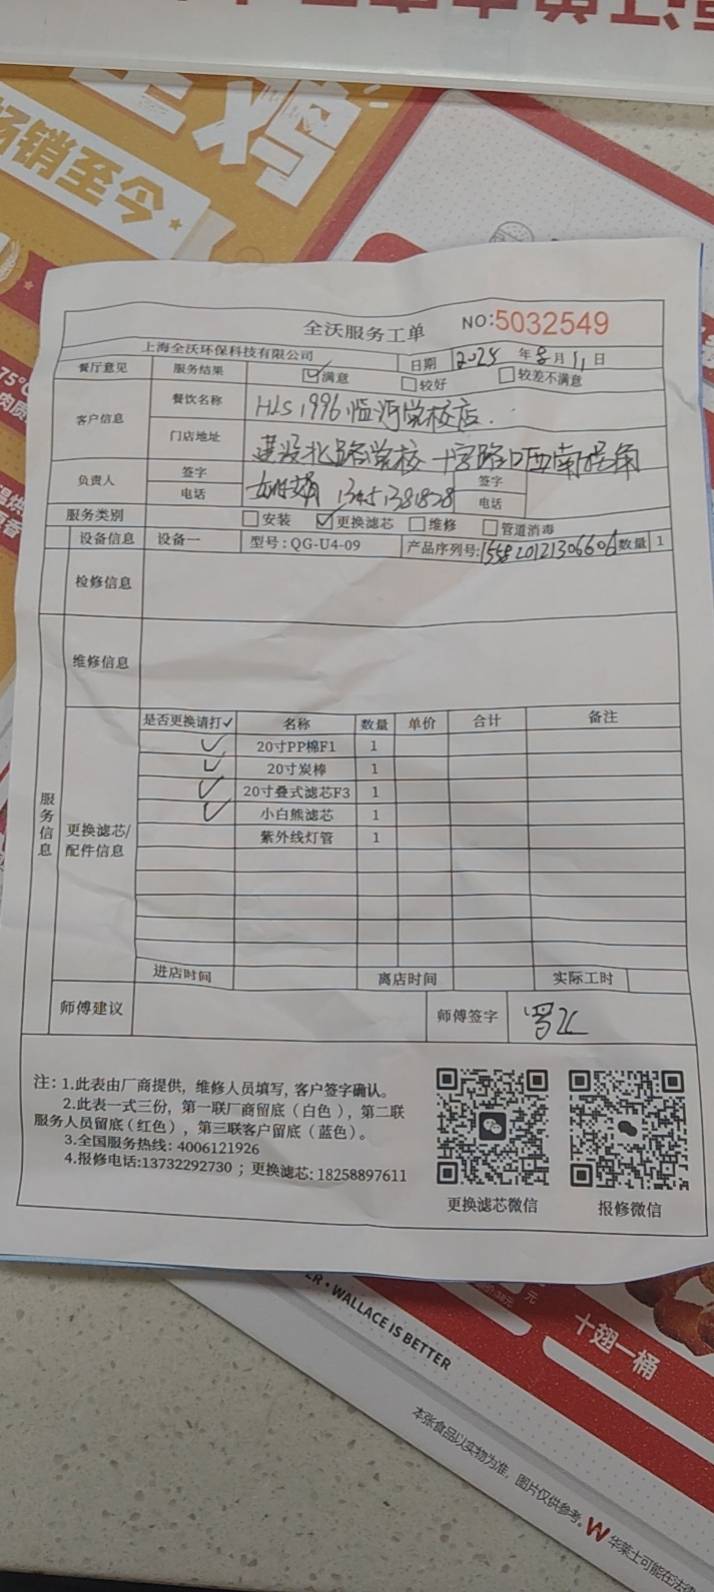 畅销至今
全沃服务工单 NO:5032549
上海全沃环保科技有限公司 日期 2025 年 8 月 11 日
餐厅意见 服务结果 ☑满意 □较好 □较差不满意
客户信息 餐饮名称 HLS1996临河学校店.
门店地址 建设北路学校十字路口西南拐角
负责人 签字 签字
电话 13451381828 电话
服务类别 □安装 ☑更换滤芯 □维修 □管道消毒
设备信息 设备一 型号:QG-U4-09 产品序列号: 155820121306606 数量 1
检修信息
维修信息
服务信息
更换滤芯/配件信息
是否更换请打✓ 名称 数量 单价 合计 备注
✓ 20寸PP棉F1 1
✓ 20寸炭棒 1
✓ 20寸叠式滤芯F3 1
✓ 小白熊滤芯 1
紫外线灯管 1
进店时间 离店时间 实际工时
师傅建议 师傅签字
注: 1.此表由厂商提供, 维修人员填写, 客户签字确认。
2.此表一式三份, 第一联厂商留底(白色), 第二联
服务人员留底(红色), 第三联客户留底(蓝色)。
3.全国服务热线: 4006121926
4.报修电话:13732292730 ; 更换滤芯: 18258897611
更换滤芯微信 报修微信
WALLACE IS BETTER
十翅一桶
本张食品以实物为准, 图片仅供参考。
华莱士可能在法